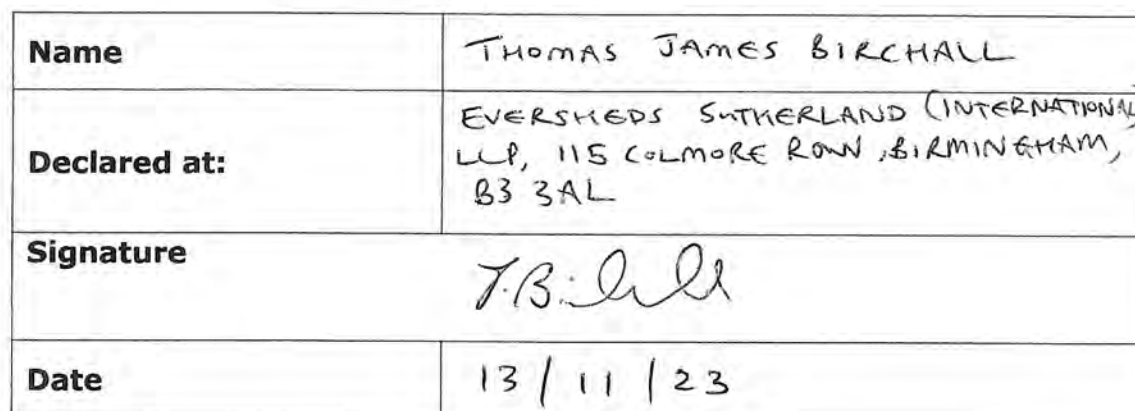 Name THOMAS JAMES BIRCHALL
Declared at: EVERSHEDS SUTHERLAND (INTERNATIONAL)
LLP, 115 COLMORE ROW, BIRMINGHAM,
B3 3AL
Signature T.Birchall
Date 13/11/23